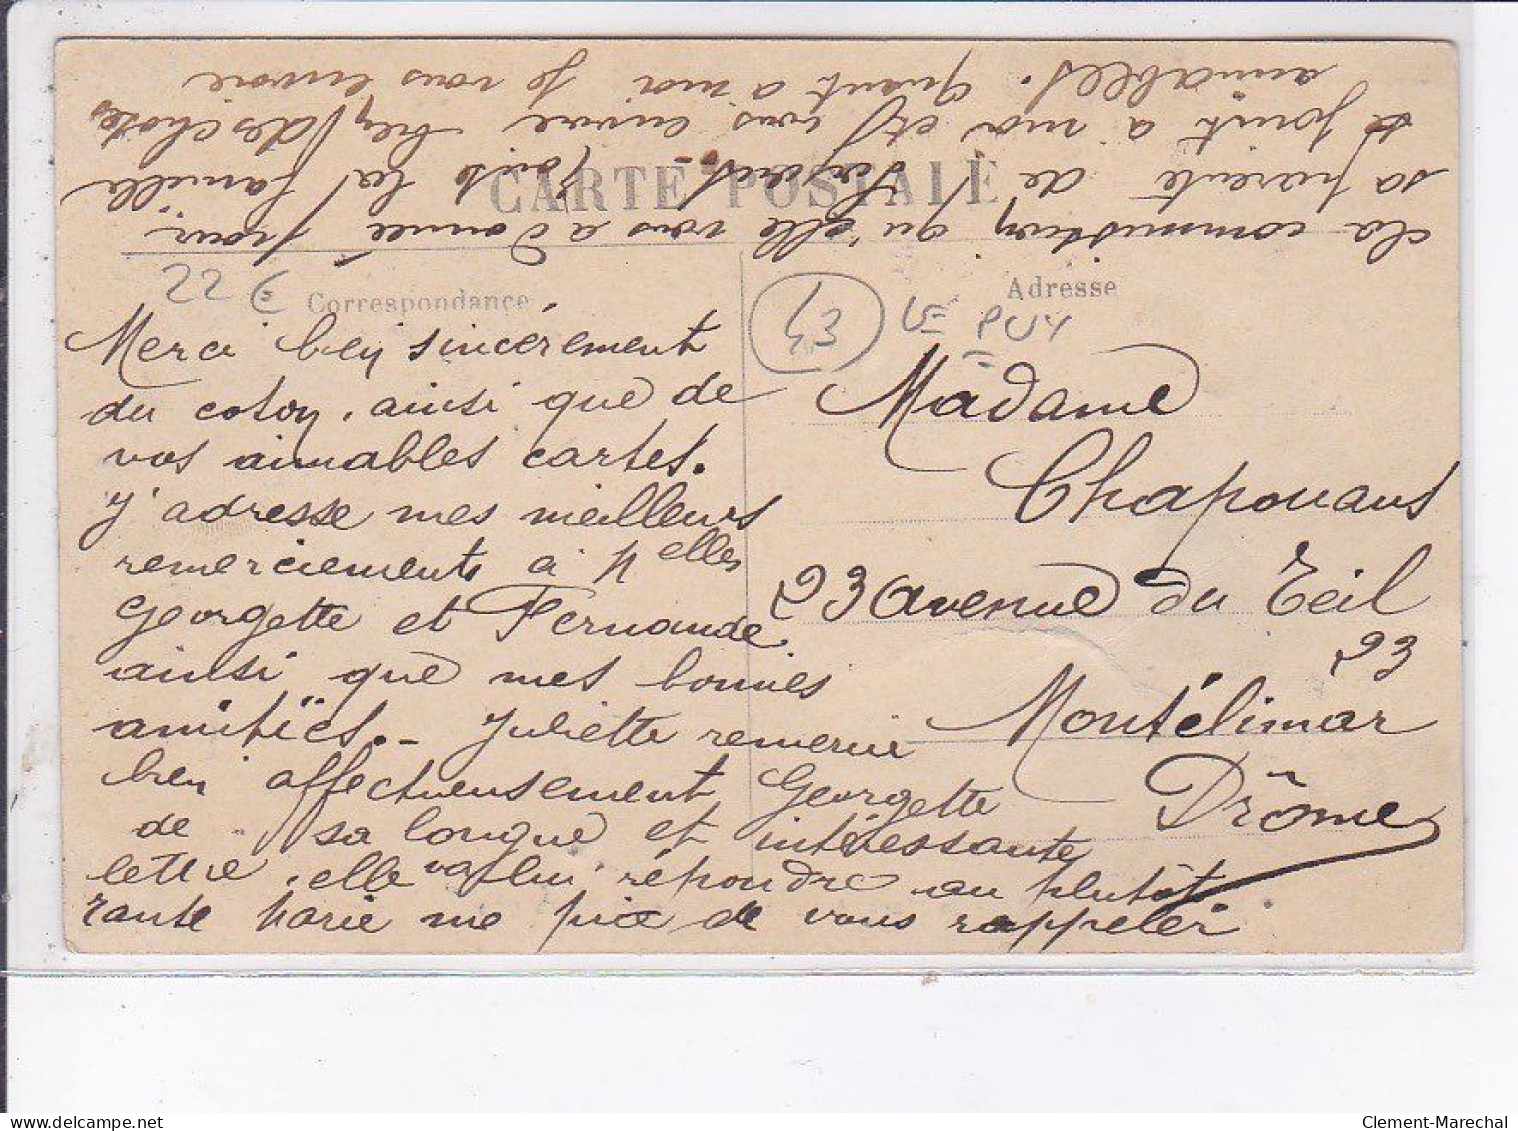 CARTE POSTALE
Correspondance
Adresse
Merci bien sincèrement
du coton, ainsi que de
vos aimables cartes.
J'adresse mes meilleurs
remerciements à Melles
Georgette et Fernande
ainsi que mes bonnes
amitiés. - Juliette remercie
bien affectueusement Georgette
de sa longue et intéressante
lettre, elle va lui répondre au plutôt
Tante Marie me prie de vous rappeler
la commission qu'elle vous a donnée pour
sa parente de toute la famille
se joint à moi et vous envoie bien des choses
aimables. Quant à moi je vous envoie
Madame
Chapouans
23 avenue du Teil
23
Montélimar
Drôme
22
Clement-Marechal